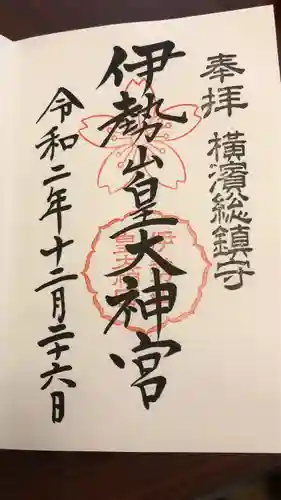 奉拝 横濱総鎮守
伊勢山皇大神宮
令和二年十二月二十六日